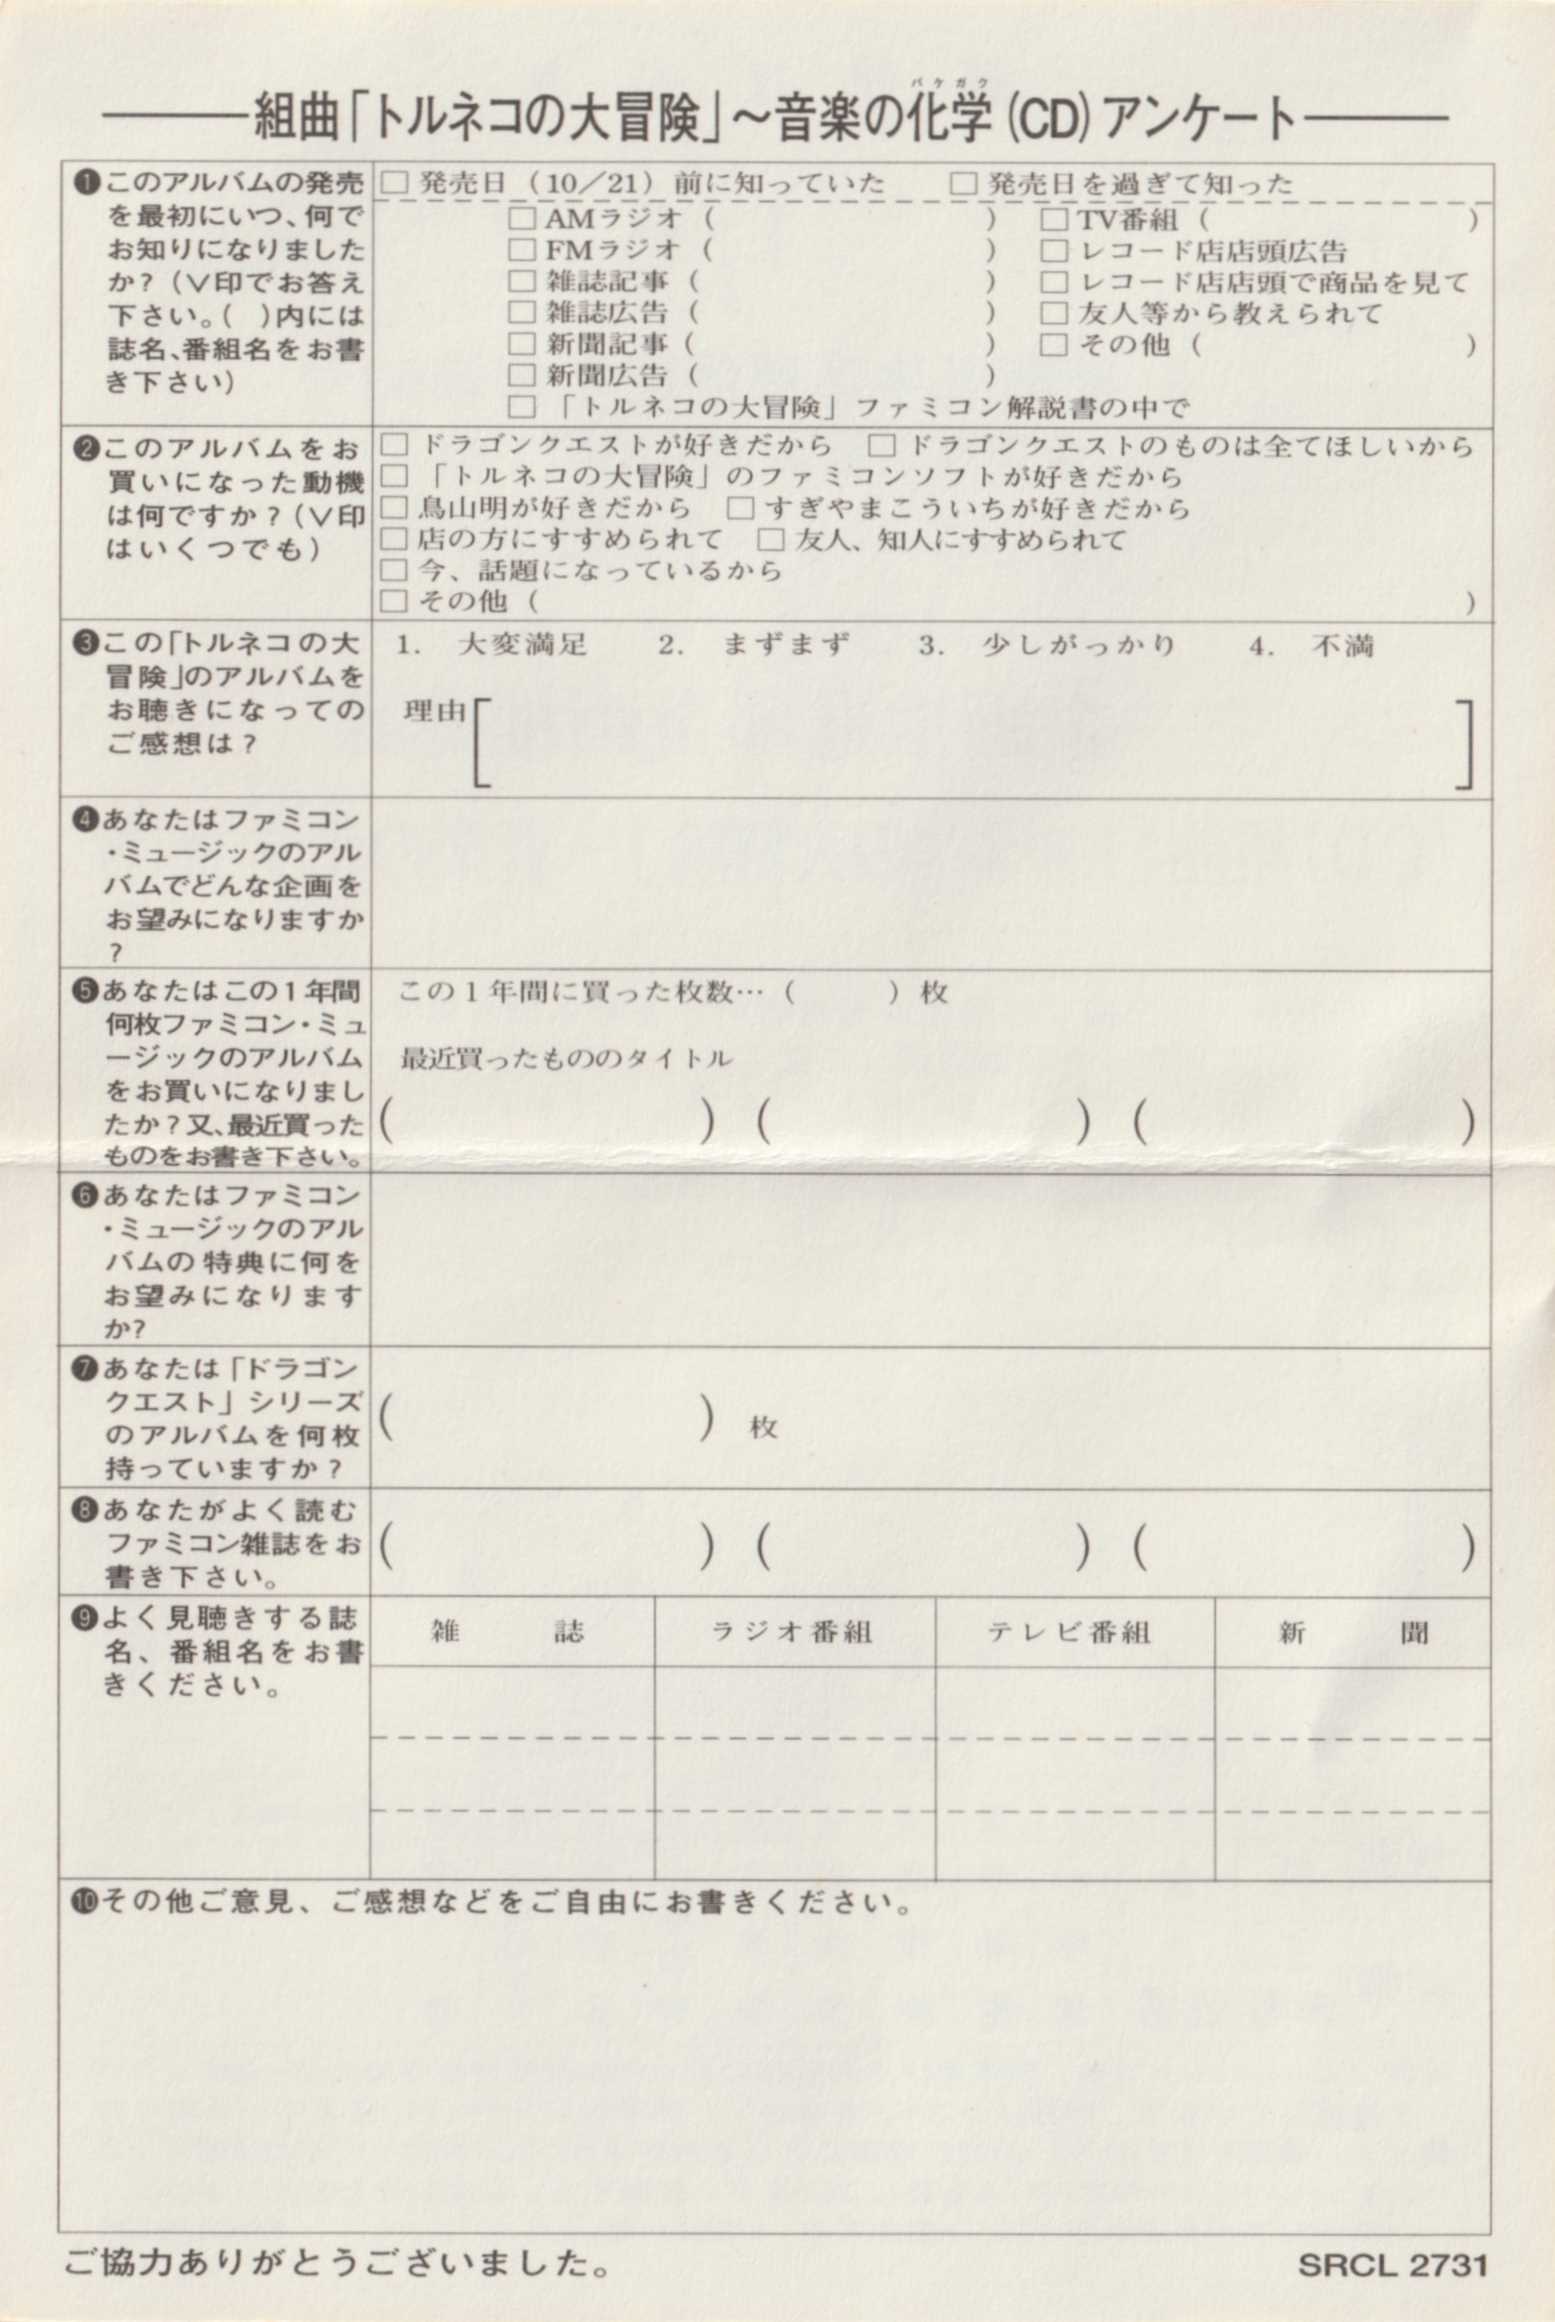 組曲「トルネコの大冒険」～音楽の化学(CD)アンケート
バケガク
❶このアルバムの発売
を最初にいつ、何で
お知りになりました
か？（∨印でお答え
下さい。( )内には
誌名、番組名をお書
き下さい）
□ 発売日（10／21）前に知っていた □ 発売日を過ぎて知った
□ AMラジオ（ ） □ TV番組（ ）
□ FMラジオ（ ） □ レコード店店頭広告
□ 雑誌記事（ ） □ レコード店店頭で商品を見て
□ 雑誌広告（ ） □ 友人等から教えられて
□ 新聞記事（ ） □ その他（ ）
□ 新聞広告（ ）
□ 「トルネコの大冒険」ファミコン解説書の中で
❷このアルバムをお
買いになった動機
は何ですか？（∨印
はいくつでも）
□ ドラゴンクエストが好きだから □ ドラゴンクエストのものは全てほしいから
□ 「トルネコの大冒険」のファミコンソフトが好きだから
□ 鳥山明が好きだから □ すぎやまこういちが好きだから
□ 店の方にすすめられて □ 友人、知人にすすめられて
□ 今、話題になっているから
□ その他（ ）
❸この「トルネコの大
冒険」のアルバムを
お聴きになっての
ご感想は？
1. 大変満足 2. まずまず 3. 少しがっかり 4. 不満
理由[ ]
❹あなたはファミコン
・ミュージックのアル
バムでどんな企画を
お望みになりますか
？
❺あなたはこの1年間
何枚ファミコン・ミュ
ージックのアルバム
をお買いになりまし
たか？又、最近買った
ものをお書き下さい。
この1年間に買った枚数…（ ）枚
最近買ったもののタイトル
( ) ( ) ( )
❻あなたはファミコン
・ミュージックのアル
バムの特典に何を
お望みになります
か?
❼あなたは「ドラゴン
クエスト」シリーズ
のアルバムを何枚
持っていますか？
( ) 枚
❽あなたがよく読む
ファミコン雑誌をお
書き下さい。
( ) ( ) ( )
❾よく見聴きする誌
名、番組名をお書
きください。
雑 誌 ラジオ番組 テレビ番組 新 聞
❿その他ご意見、ご感想などをご自由にお書きください。
ご協力ありがとうございました。 SRCL 2731